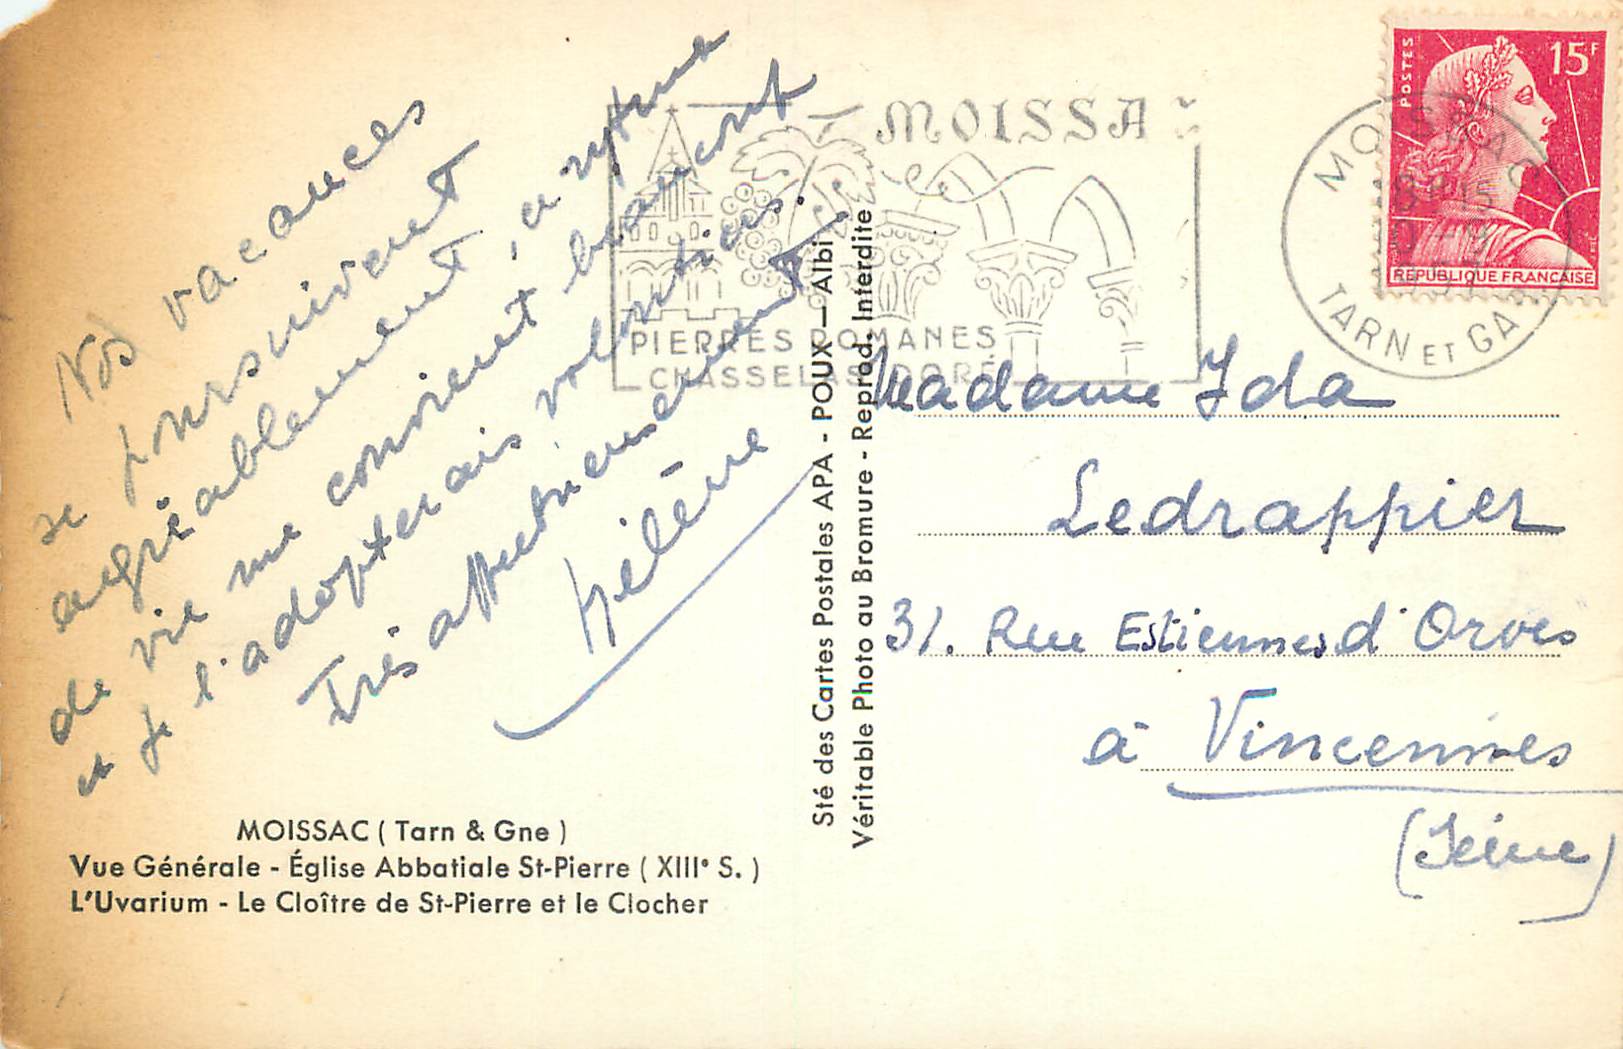 Nos vacances
se poursuivent
agréablement, ce rythme
de vie me convient beaucoup
et je l'adopterais volontiers.
Très affectueusement
Hélène
MOISSAC ( Tarn & Gne )
Vue Générale - Église Abbatiale St-Pierre ( XIII° S. )
L'Uvarium - Le Cloître de St-Pierre et le Clocher
Sté des Cartes Postales APA - POUX—Albi
Véritable Photo au Bromure - Reprod. Interdite
MOISSA
PIERRES ROMANES
CHASSELAS DORÉ
POSTES
15F
REPUBLIQUE FRANÇAISE
MOISSAC
TARN ET GA
Madame Ida
Ledrappier
31. Rue Estiennes d'Orves
à Vincennes
(Seine)